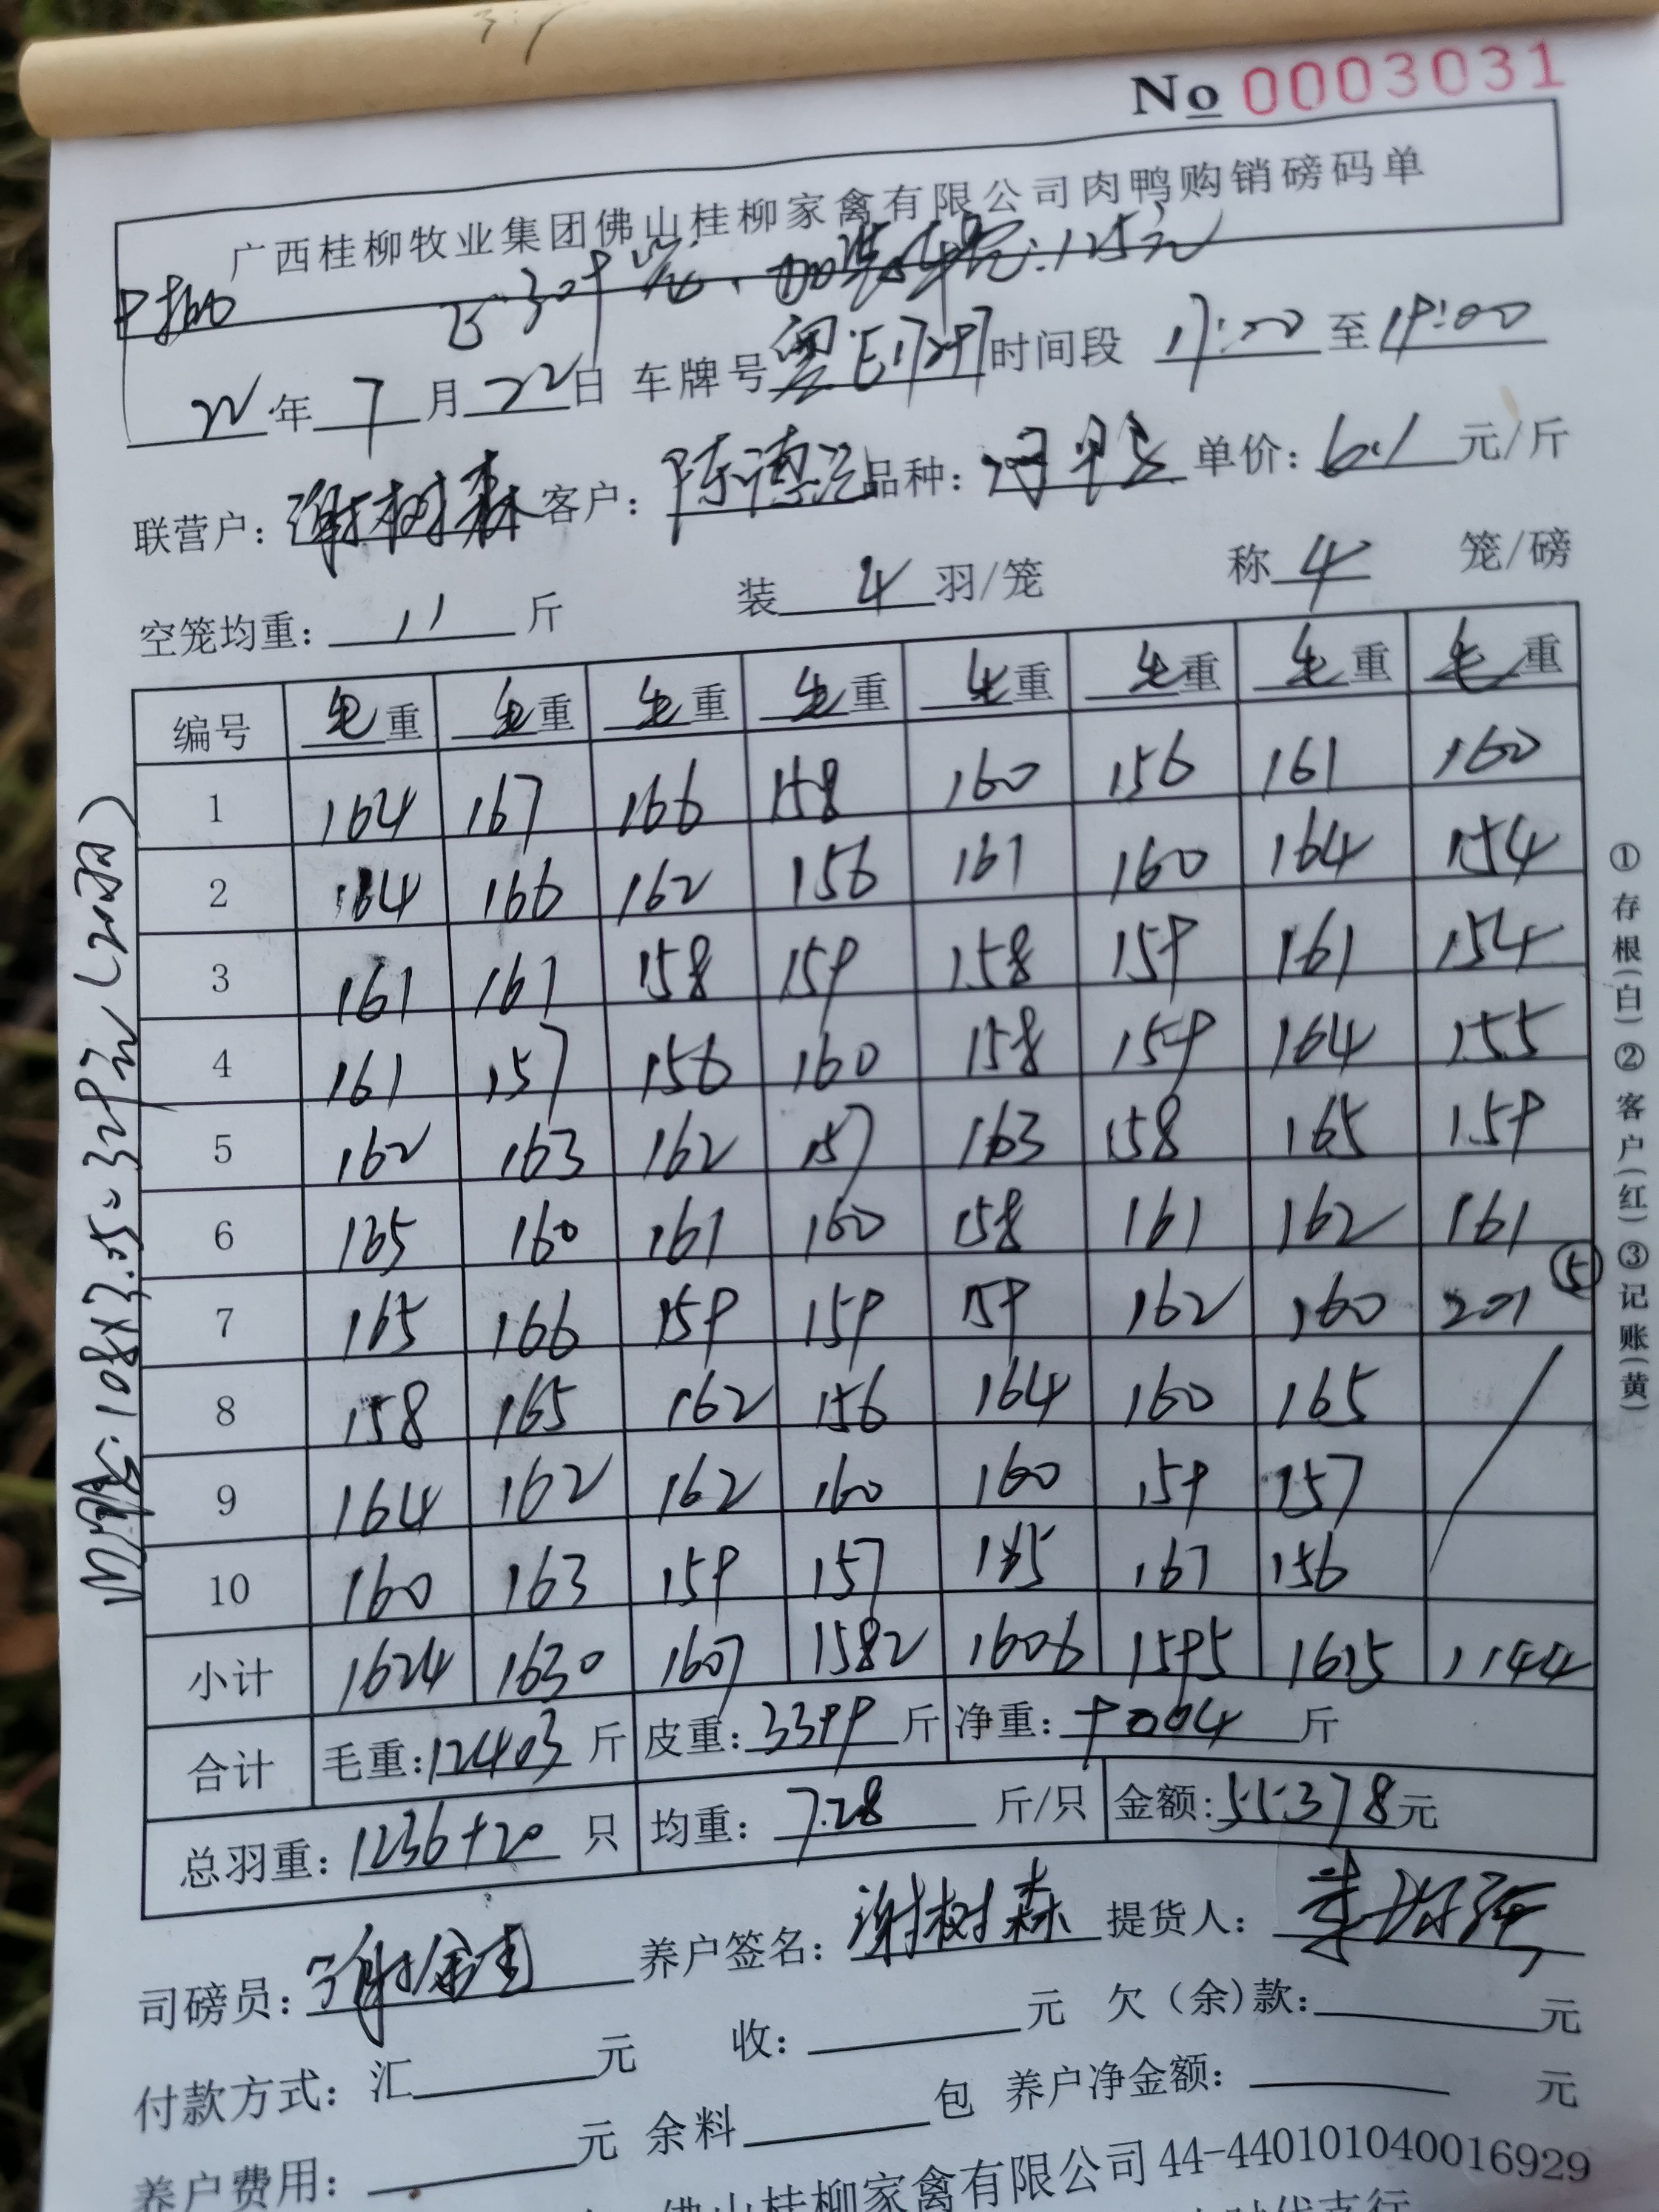 No 0003031
广西桂柳牧业集团佛山桂柳家禽有限公司肉鸭购销磅码单
22年 7月 22日 车牌号 粤E 时间段 17:00 至 19:00
联营户: 谢树森 客户: 陈德 品种: 单价: 6.1 元/斤
空笼均重: 11 斤 装 4 羽/笼 称 4 笼/磅
编号 毛重 毛重 毛重 毛重 毛重 毛重 毛重 毛重
1 164 167 166 158 160 156 161 160
2 164 166 162 156 161 160 164 154
3 161 161 158 159 158 159 161 154
4 161 157 156 160 158 159 164 155
5 162 163 162 157 163 158 165 159
6 165 160 161 160 158 161 162 161
7 165 166 159 159 159 162 160 201 ⑤
8 158 165 162 156 164 160 165
9 164 162 162 160 160 159 157
10 160 163 159 157 165 161 156
小计 1624 1630 1607 1582 1606 1595 1615 1144
合计 毛重: 12403 斤 皮重: 3399 斤 净重: 9004 斤
总羽重: 1236+20 只 均重: 7.28 斤/只 金额: 55378元
司磅员: 养户签名: 谢树森 提货人:
付款方式: 汇 元 收: 元 欠(余)款: 元
养户费用: 元 余料 包 养户净金额: 元
佛山桂柳家禽有限公司 44-440101040016929
①存根(白)②客户(红)③记账(黄)
108×3.05=329元(20羽)